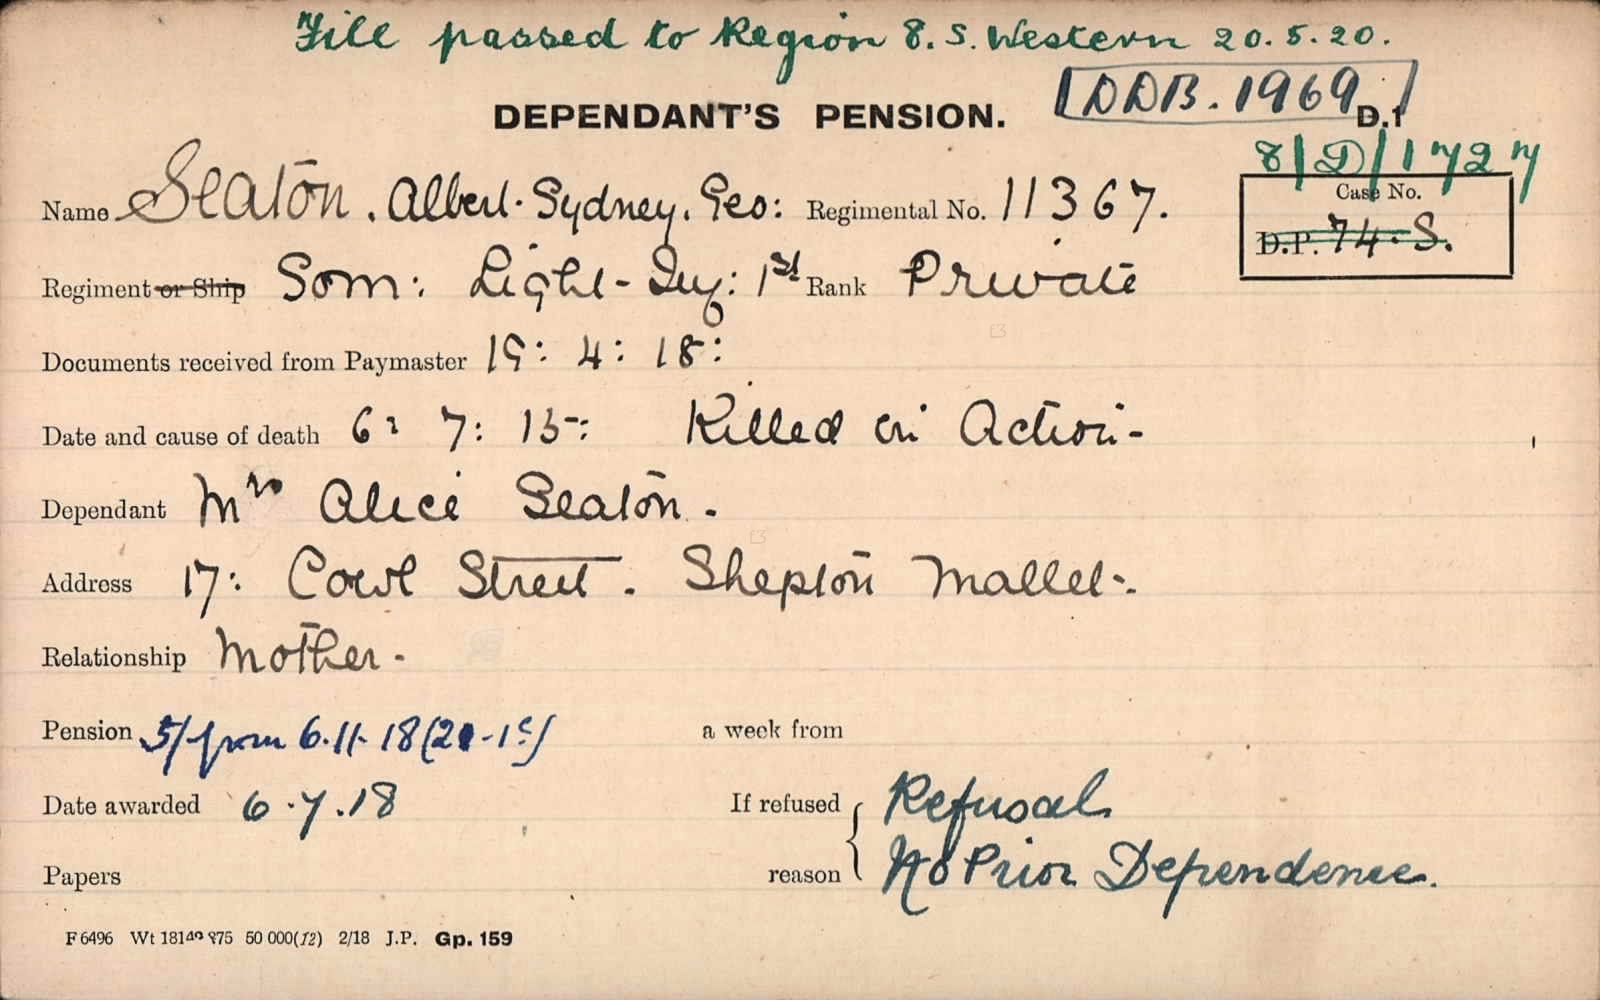 File passed to Region 8. S. Western 20.5.20.
DDB. 1969
DEPENDANT'S PENSION. D.1
8/D/1727
Name Seaton, Albert Sydney, Geo: Regimental No. 11367.
Case No.
D.P. 74.S.
Regiment or Ship Som: Light- Inf: 1st Rank Private
Documents received from Paymaster 19: 4: 18:
Date and cause of death 6: 7: 15: Killed in Action-
Dependant Mrs Alice Seaton.
Address 17: Cowl Street. Shepton Mallet.
Relationship Mother-
Pension 5/- from 6.11.18 a week from
Date awarded 6.7.18 If refused Refusal
Papers reason No Prior Dependence.
F 6496 Wt 50 000(12) 2/18 J.P. Gp. 159